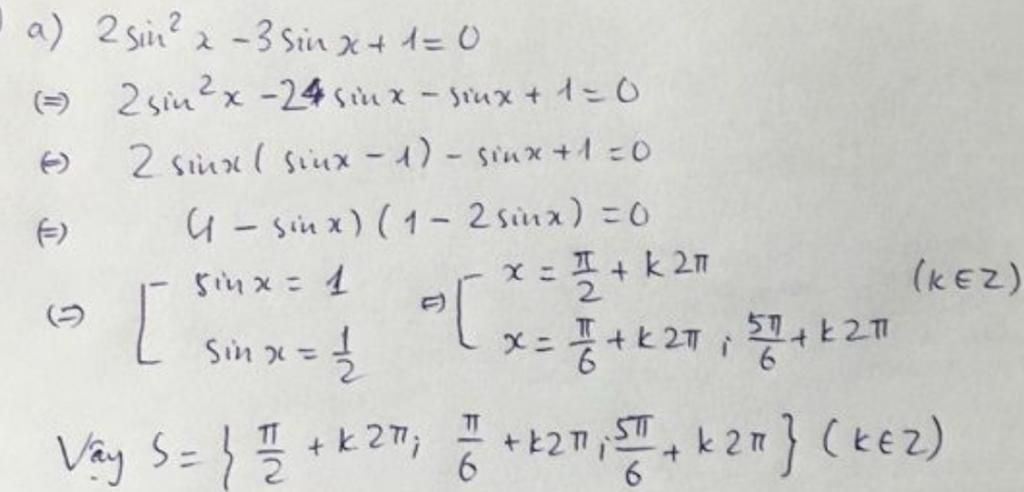 a) 2 sin² x - 3 sin x + 1 = 0
(=) 2 sin² x - 2 sin x - sin x + 1 = 0
(=) 2 sin x ( sin x - 1) - sin x + 1 = 0
(=) (1 - sin x) (1 - 2 sin x) = 0
(=) [ sin x = 1 (=) [ x = π/2 + k2π (k ∈ Z)
sin x = 1/2 x = π/6 + k2π ; 5π/6 + k2π
Vậy S = { π/2 + k2π; π/6 + k2π; 5π/6 + k2π } (k ∈ Z)